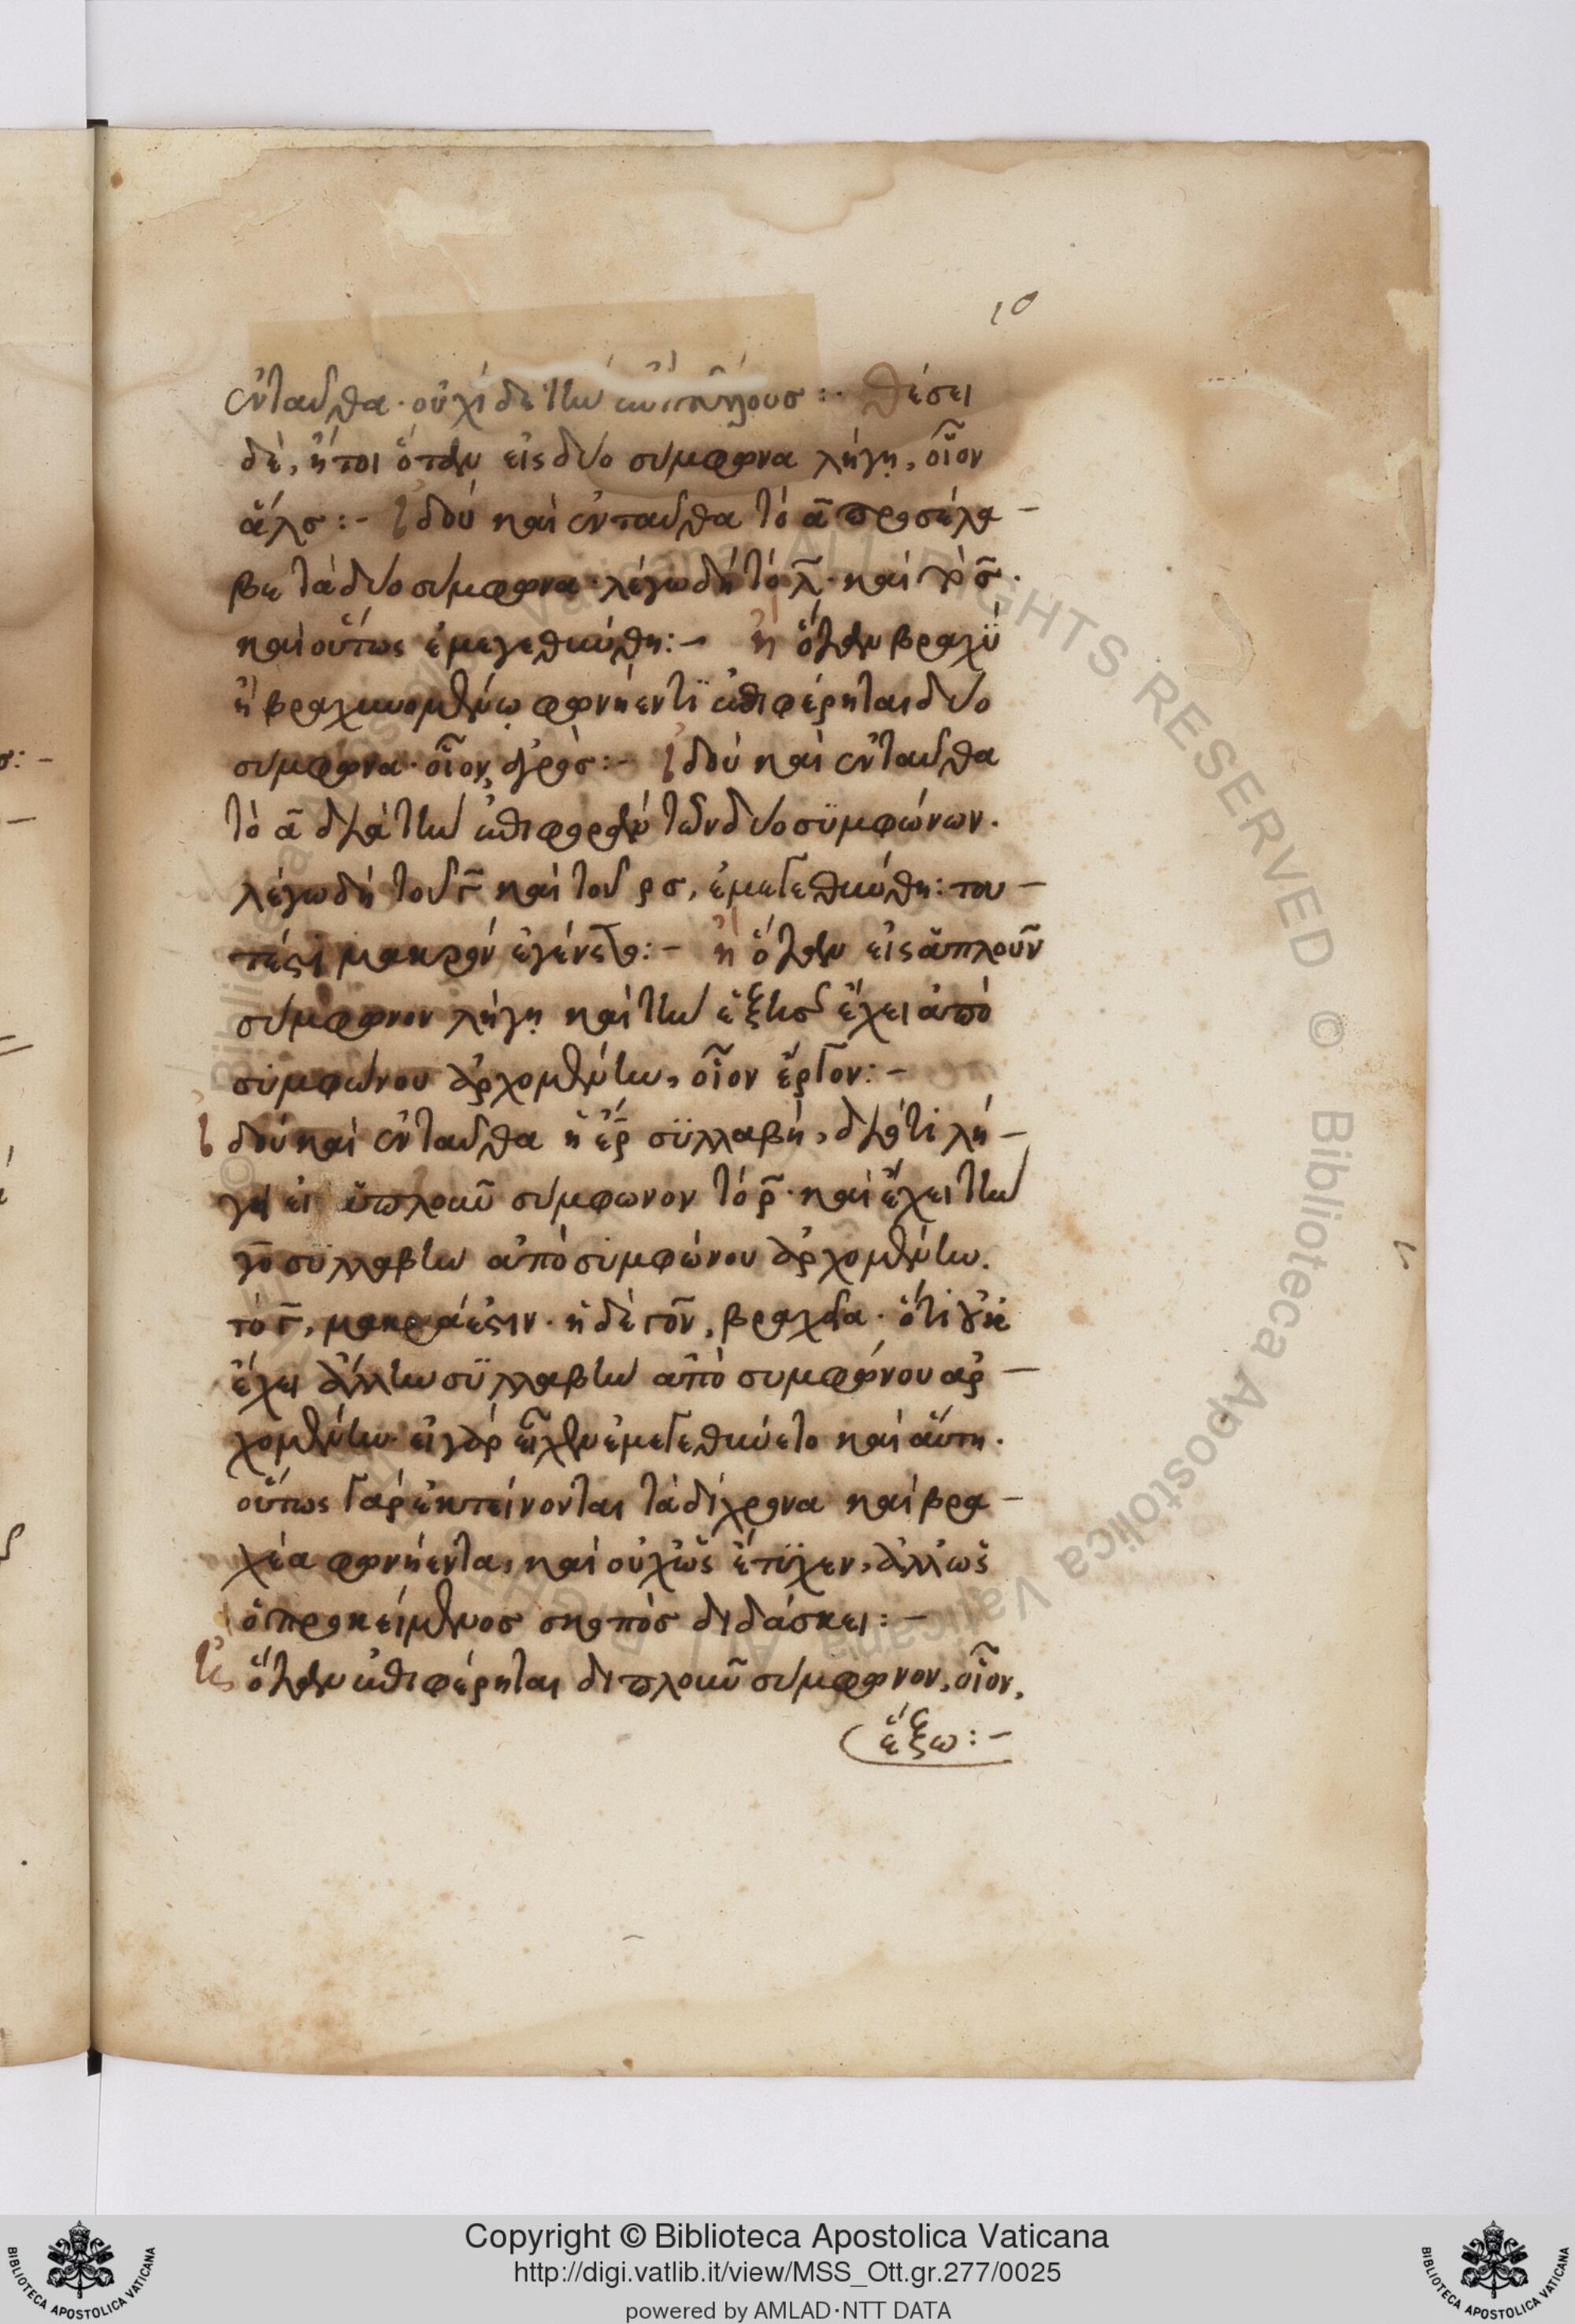 10
ἐνταῦθα· οὐχὶ δὲ τὴν :· θέσει
δὲ, ἤτοι ὅταν εἰς δύο σύμφωνα λήγη, οἷον
ἅλς :- ἰδοὺ καὶ ἐνταῦθα τὸ α προσέλα -
βε τὰ δύο σύμφωνα· λέγω δὴ τὸ λ· καὶ τὸ σ·
καὶ οὕτως ἐμεγεθύνθη :- ἢ ὅταν βραχεῖ
ἢ βραχυνομένω φωνήεντι ἐπιφέρηται δύο
σύμφωνα· οἷον, ἀγρός :- ἰδοὺ καὶ ἐνταῦθα
τὸ α διὰ τὴν ἐπιφορὰν τῶν δύο συμφώνων·
λέγω δὴ τοῦ γ καὶ τοῦ ρσ, ἐμεγεθύνθη: του -
τέστι μακρὸν ἐγένετο :- ἢ ὅταν εἰς ἁπλοῦν
σύμφωνον λήγη καὶ τὴν ἑξῆς ἔχει ἀπὸ
συμφώνου ἀρχομένην, οἷον ἔργον :-
ἰδοὺ καὶ ἐνταῦθα ἡ ἐρ συλλαβὴ, διότι λή -
γει εἰ ἁπλοῦν σύμφωνον τὸ ρ· καὶ ἔχει τὴν
γο συλλαβὴν ἀπὸ συμφώνου ἀρχομένην.
τὸ γ, μακρά ἐστιν· ἡ δὲ γον, βραχεῖα· ὅτι οὐκ
ἔχει ἄλλην συλλαβὴν ἀπὸ συμφώνου ἀρ -
χομένην· εἰ γὰρ εἶχεν ἐμεγεθύνετο καὶ αὕτη·
οὕτως γὰρ ἐκτείνονται τὰ δίχρονα καὶ βρα -
χέα φωνήεντα, καὶ οὐχ ὡς ἔτυχεν, ἀλλ' ὡς
ὁ προκείμενος σκοπὸς διδάσκει :-
ὅταν ἐπιφέρηται διπλοῦν σύμφωνον, οἷον,
ἔξω :-
Copyright © Biblioteca Apostolica Vaticana
http://digi.vatlib.it/view/MSS_Ott.gr.277/0025
powered by AMLAD·NTT DATA